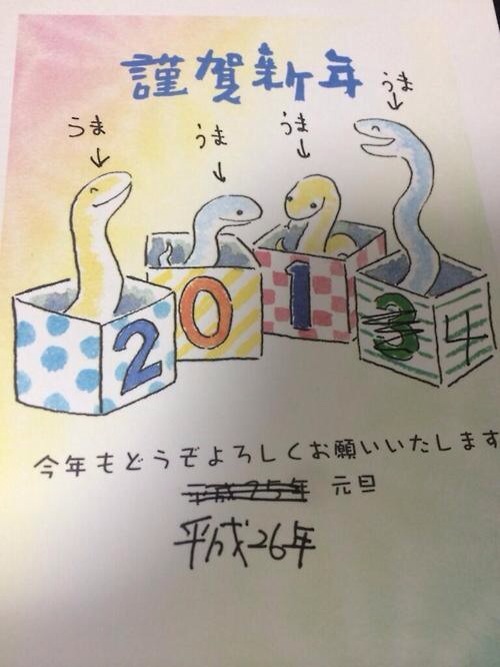 謹賀新年
うま
うま
うま
うま
2 0 1 3 4
今年もどうぞよろしくお願いいたします
平成25年 元旦
平成26年